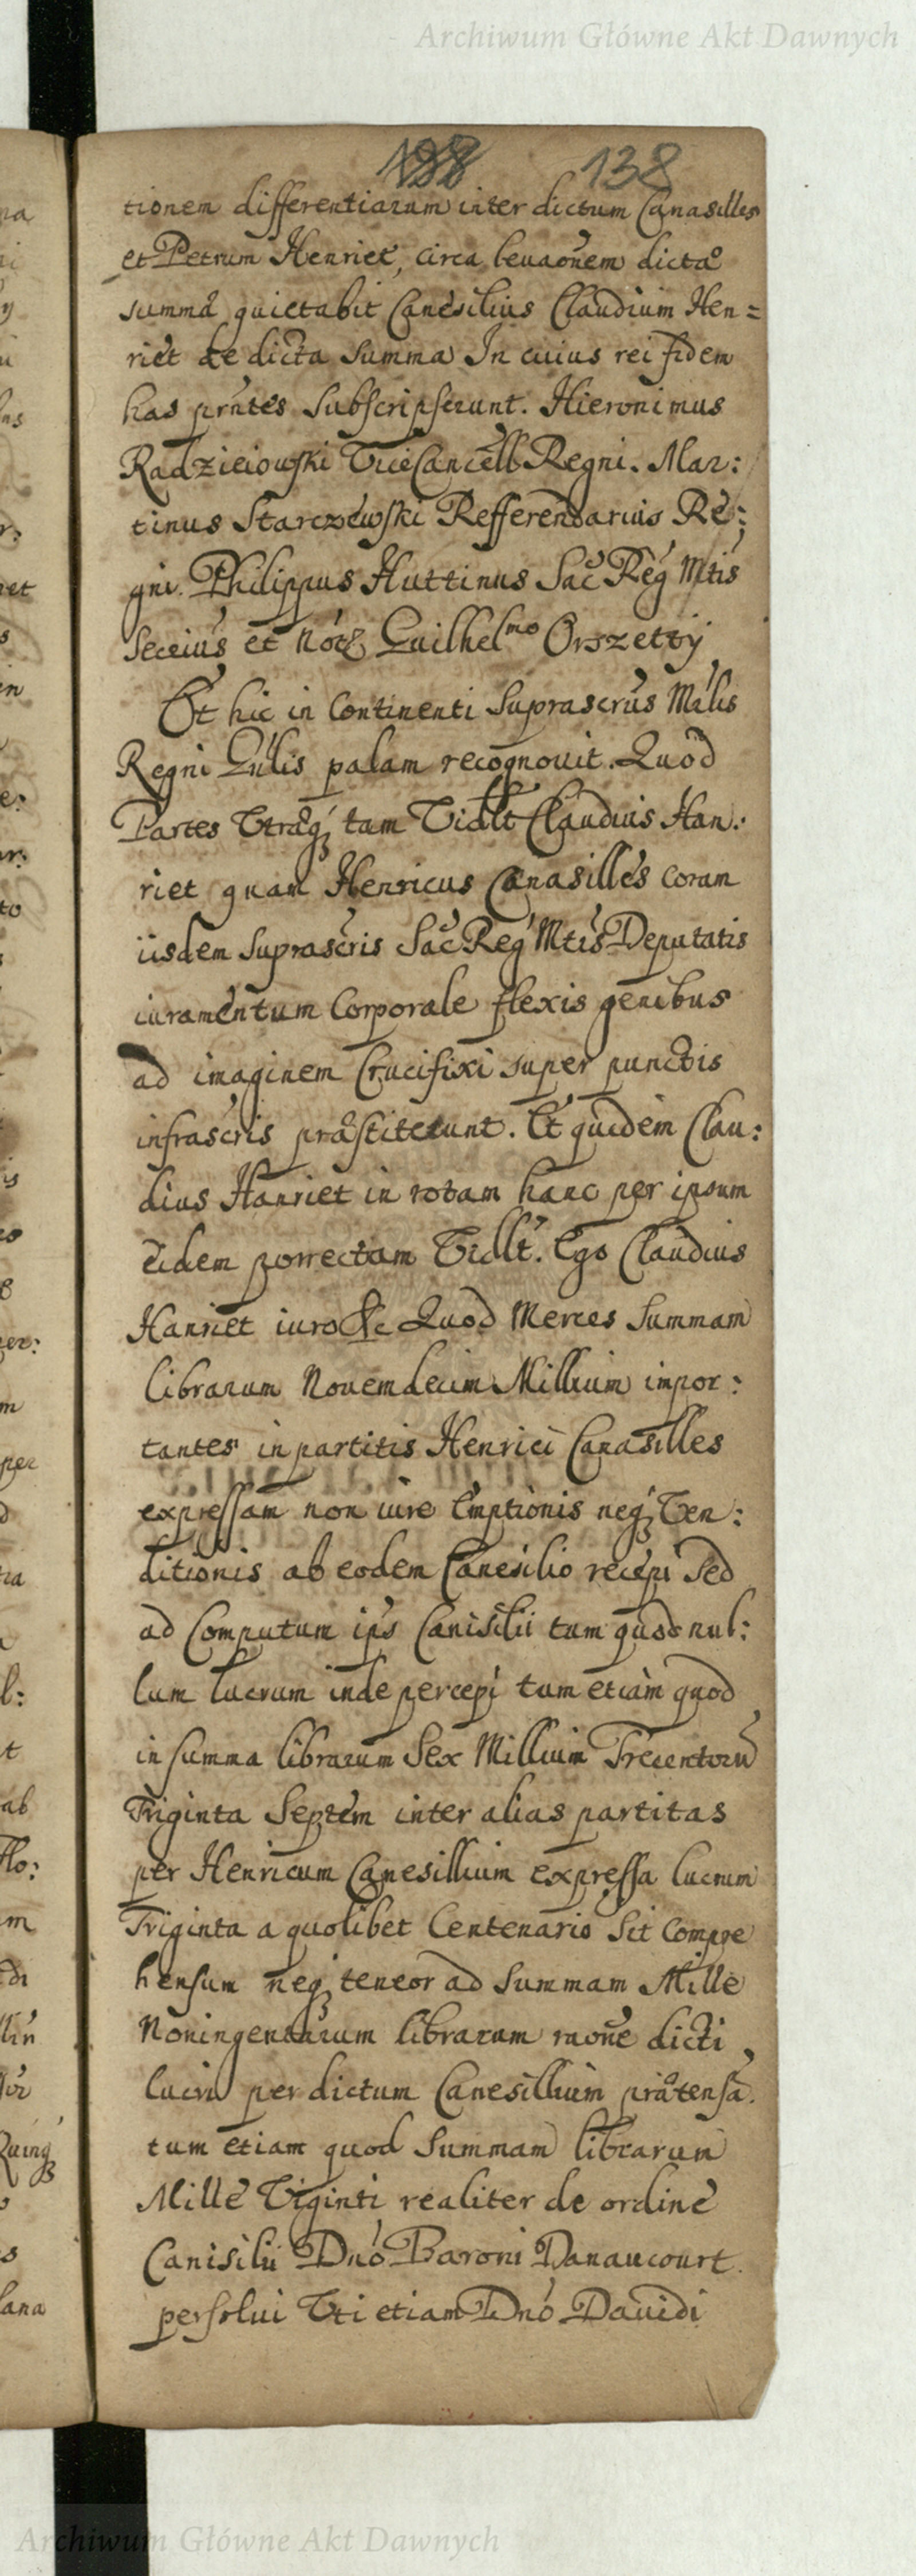 Archiwum Główne Akt Dawnych
138 138
tionem differentiarum inter dictum Canasilles
et Petrum Henriet, circa levaõnem dicta
summa quietabit Canesilius Claudium Hen=
riet de dicta summa In cuius rei fidem
has prntes Subscripserunt. Hieronimus
Radzieiowski ViceCancell Regni. Mar:
tinus Starczewski Refferendarius Re:
gni. Philippus Huttinus Sac Reg Mtis
Secrius et Not Guilhelmo Orszetty
Et hic in Continenti Suprascrus Mglis
Regni Gnlis palam recognovit. Quod
Partes Utraq tam Vidlt Claudius Han:
riet quam Henricus Canasilles coram
iisdem Suprascris Sac Reg Mtis Deputatis
iuramentum Corporale flexis genibus
ad imaginem Crucifixi super punctis
infrascris præstiterunt. Et quidem Clau:
dius Hanriet in rotam hanc per ipsum
eidem porrectam Vidlt. Ego Claudius
Hanriet iuro &c Quod Merces Summam
librarum Novemdecim Millium impor:
tantes in partitis Henrici Canasilles
expressam non iure Emptionis neq Ven:
ditionis ab eodem Canesilio recepi Sed
ad Computum ips Canisilii tum quod nul:
lum lucrum inde percepi tum etiam quod
in summa librarum Sex Millium Trecentoru
Triginta Septem inter alias partitas
per Henricum Canesillium expressa lucrum
Triginta a quolibet Centenario Sit Compre
hensum neq teneor ad Summam Mille
Noningentarum librarum raõne dicti
lucri per dictum Canesillium prætensa.
tum etiam quod Summam librarum
Mille Viginti realiter de ordine
Canisilii Dno Baroni Danaucourt
persolui Uti etiam Dno Davidi
Archiwum Główne Akt Dawnych